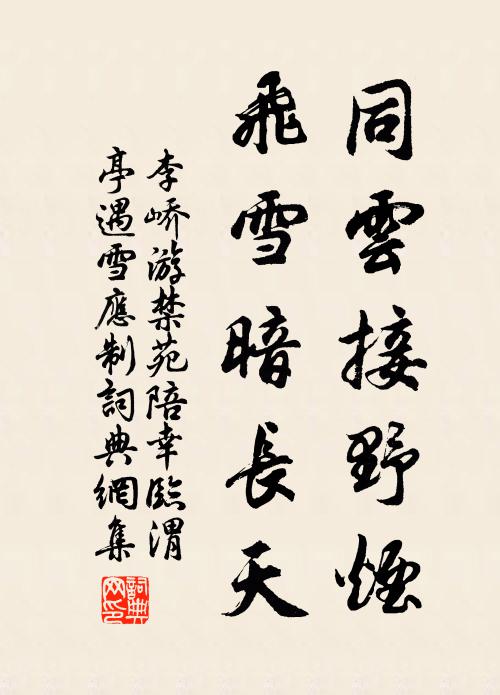 同雲接野煙
飛雪暗長天
李嶠游禁苑陪幸臨渭
亭遇雪應制詞典網集
詞典
网印